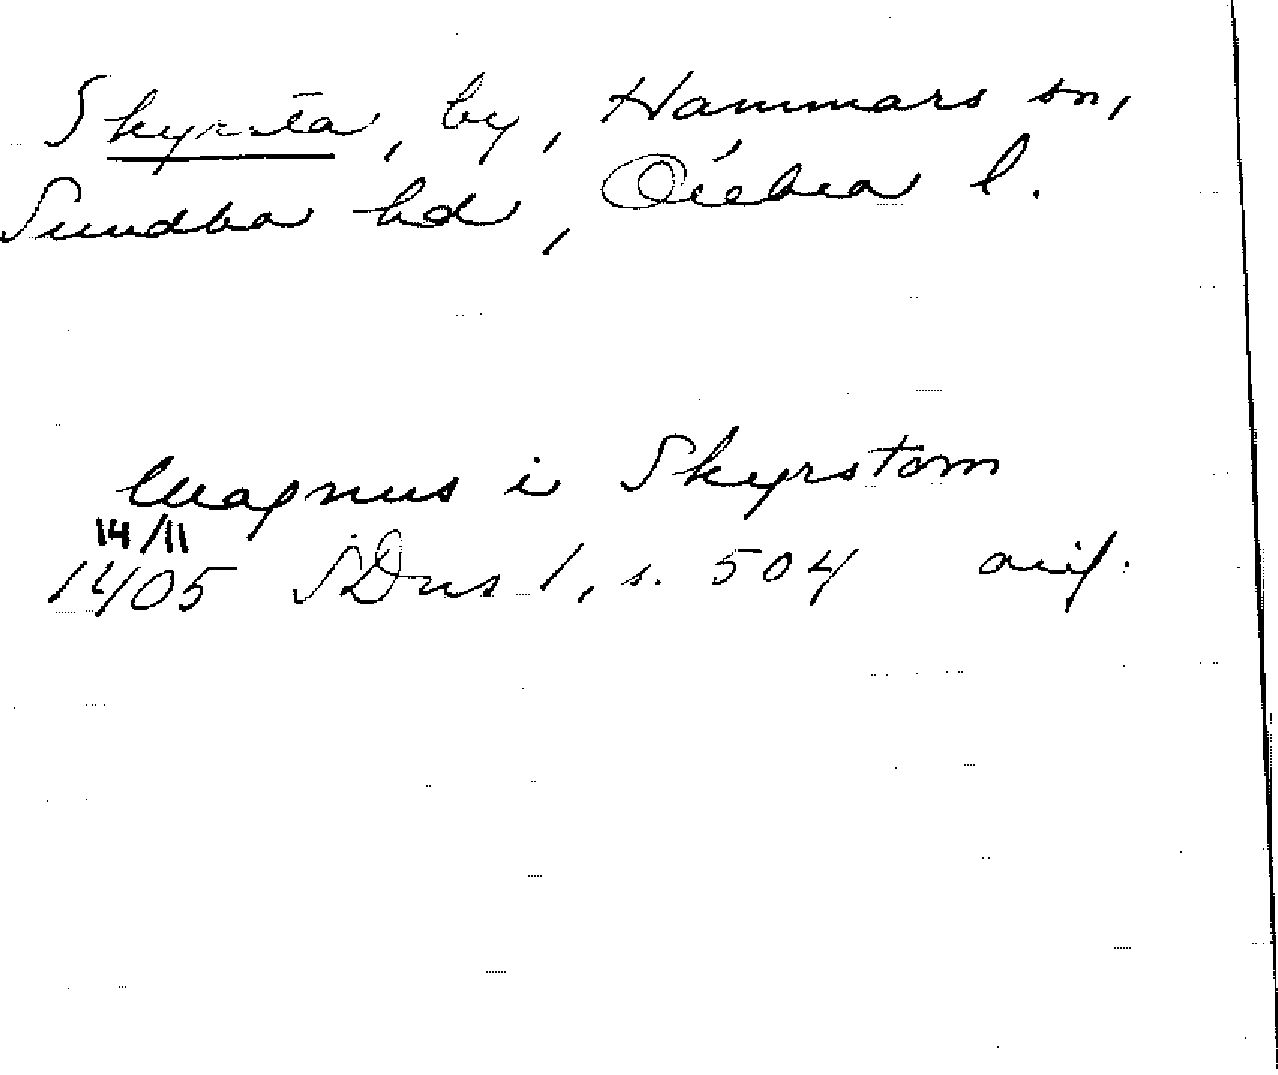 Skyrsta, by, Hammars sn,
Sundbo hd, Örebro l.
Magnus i Skyrstom
14/11
1405 SDns 1, s. 504 avskr.